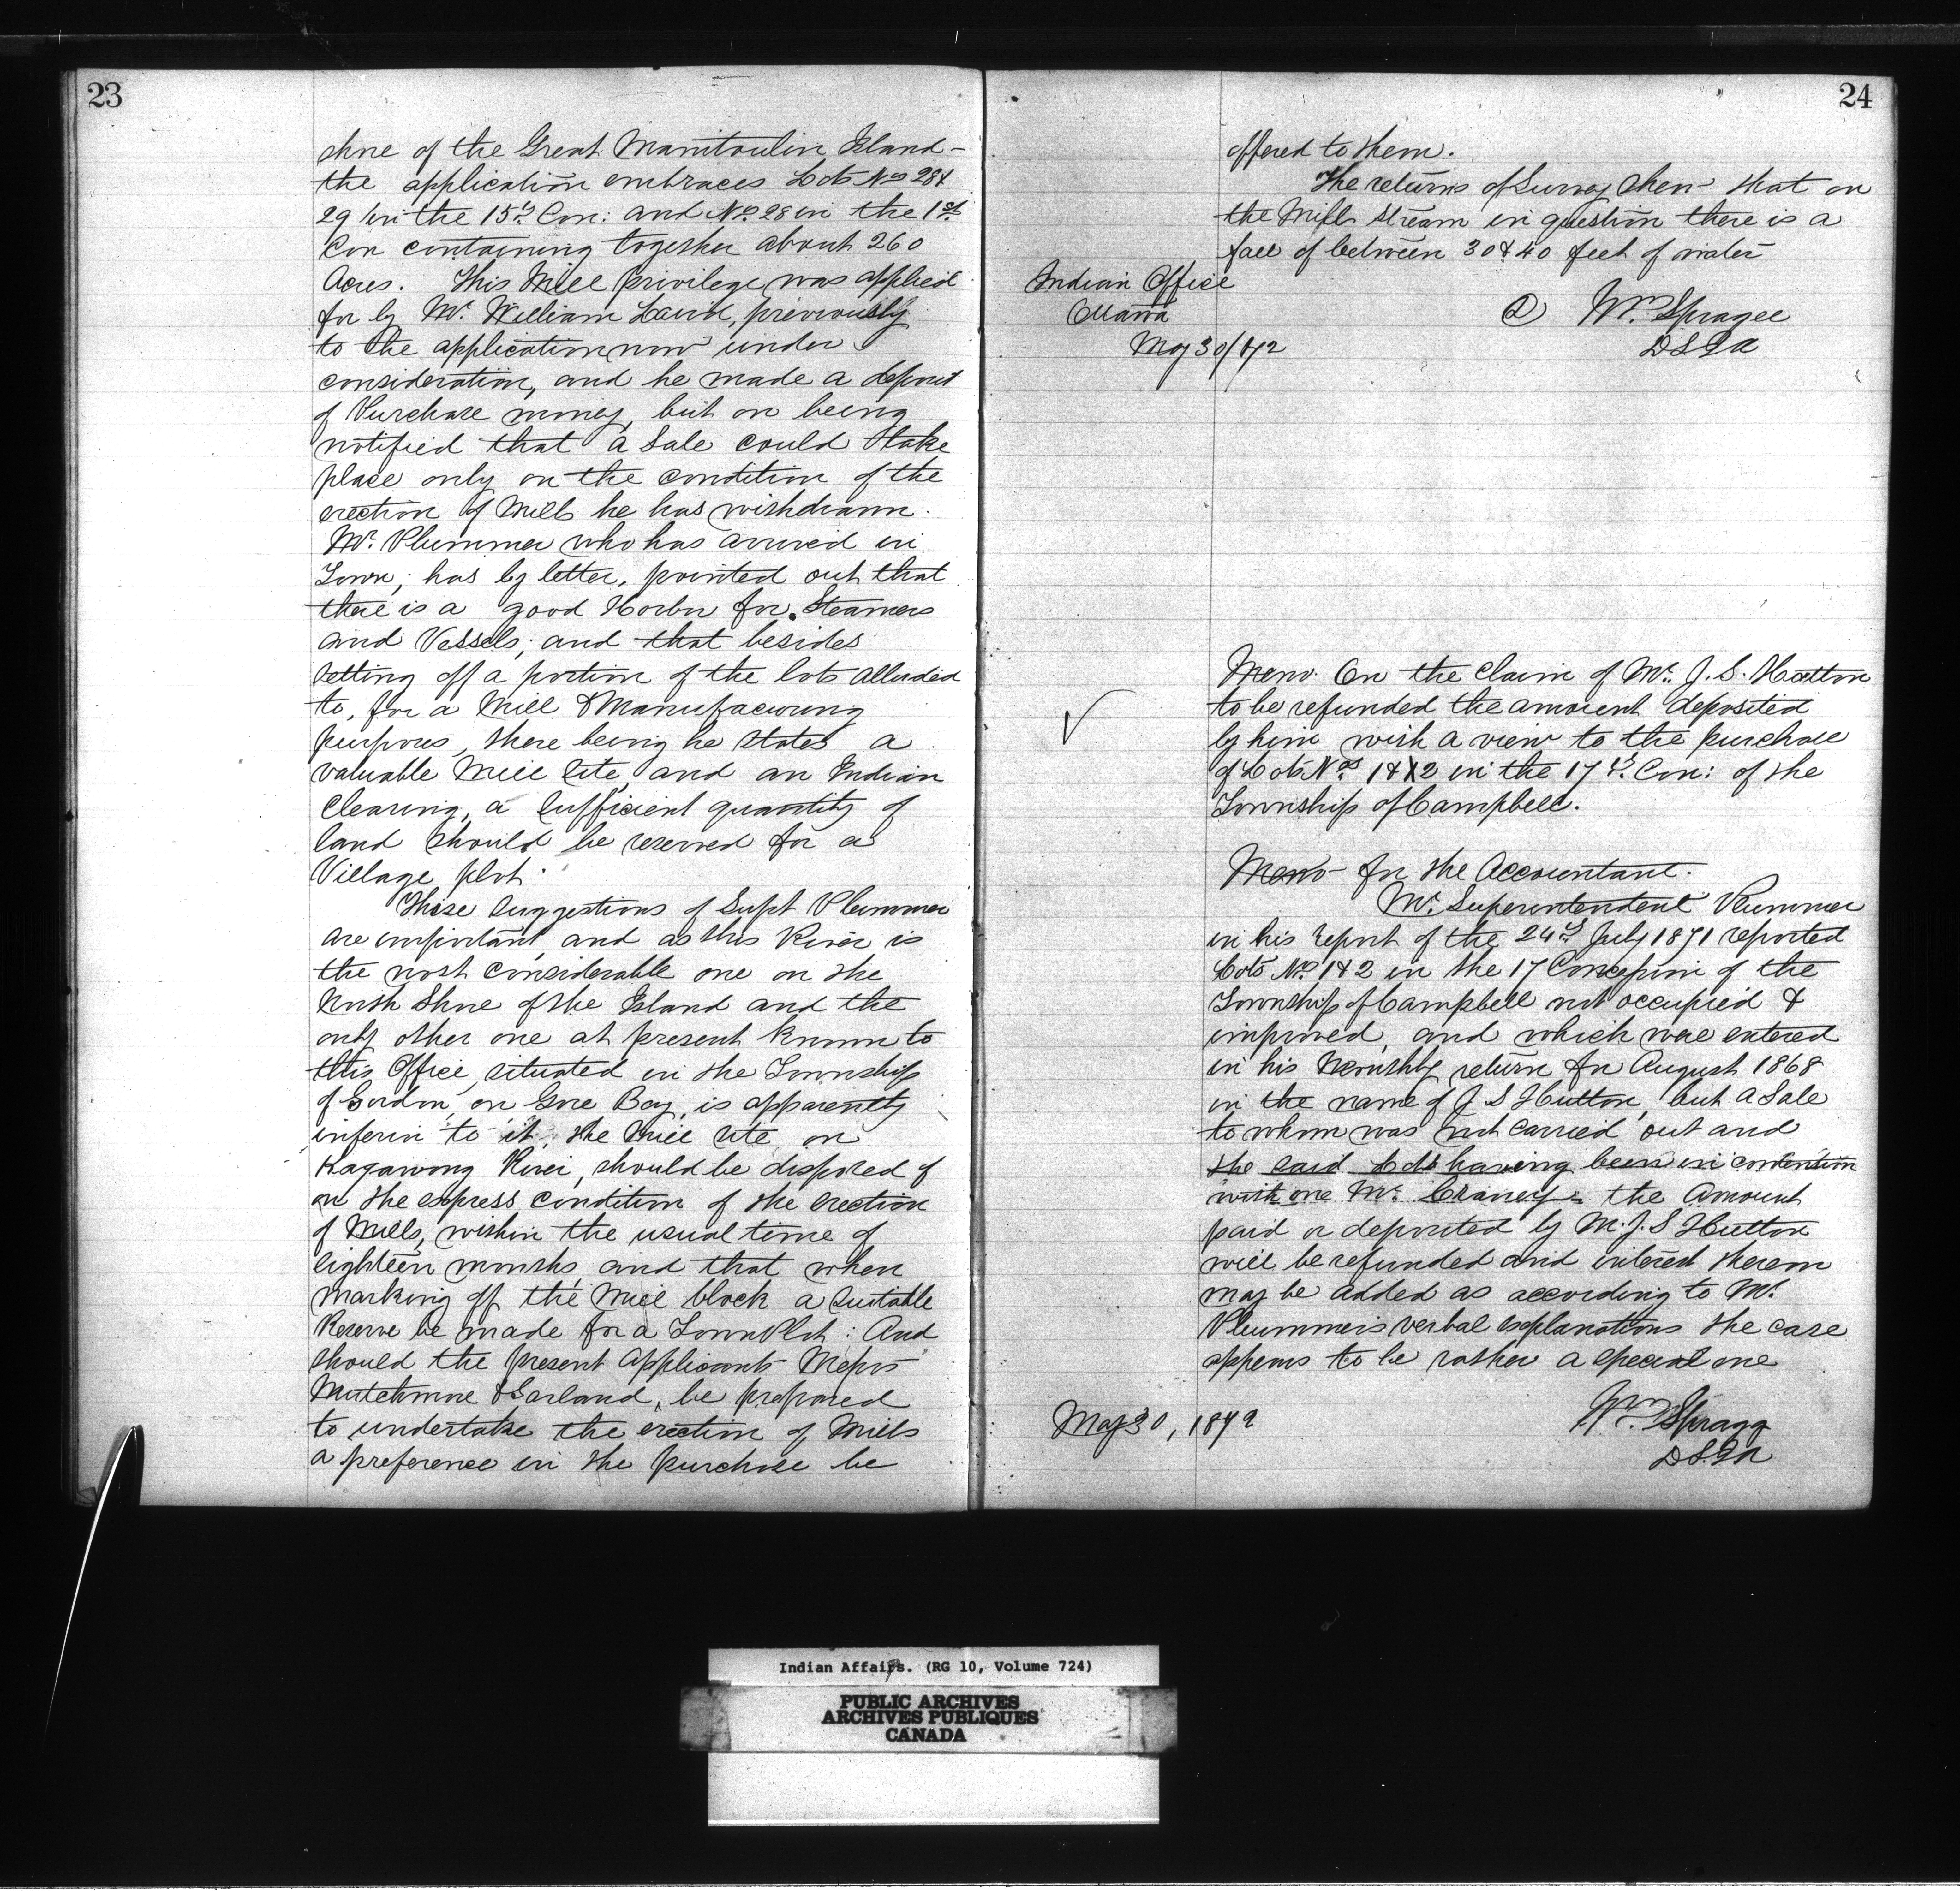 23
shore of the Great Manitoulin Island -
the application embraces Lots Nos 28 &
29 in the 15th Con: and No. 28 in the 1st
Con containing together about 260
Acres. This Mill privilege was applied
for by Mr. William Laird, previously
to the application now under
consideration, and he made a deposit
of Purchase money, but on being
notified that a Sale could take
place only on the condition of the
erection of Mills he has withdrawn.
Mr. Plummer who has arrived in
Town, has by letter, pointed out that
there is a good Harbor for Steamers
and Vessels; and that besides
setting off a portion of the lots alluded
to, for a Mill & Manufacturing
purposes, there being he states a
valuable Mill site, and an Indian
Clearing, a sufficient quantity of
land should be reserved for a
Village plot.
These suggestions of Supt Plummer
are important, and as this River is
the most considerable one on the
North Shore of the Island and the
only other one at present known to
this Office, situated in the Township
of Gordon, on Gore Bay, is apparently
inferior to it, the Mill site on
Kagawong River, should be disposed of
on the express condition of the erection
of Mills, within the usual time of
eighteen months, and that when
marking off the Mill block a Suitable
Reserve be made for a Town Plot: And
should the present Applicants Messrs
Mutchmore & Garland, be prepared
to undertake the erection of Mills
a preference in the purchase be
24
offered to them.
The returns of Survey shew that on
the Mill Stream in question there is a
fall of between 30 & 40 feet of water
Indian Office
Ottawa
May 30/72
Wm. Spragge
DSIA
Memo On the Claim of Mr. J. S. Hutton
to be refunded the amount deposited
by him with a view to the purchase
of Lots Nos. 1 & 2 in the 17th Con: of the
Township of Campbell.
Memo for the Accountant.
Mr. Superintendent Plummer
in his report of the 24th July 1871 reported
Lots No. 1 & 2 in the 17 Concession of the
Township of Campbell not occupied &
improved, and which were entered
in his Monthly return for August 1868
in the name of J S Hutton, but a Sale
to whom was not carried out and
the said Lots having been in contention
with one Mr. the Amount
paid or deposited by M. J. S Hutton
will be refunded and interest thereon
may be added as according to Mr.
Plummers verbal explanations the case
appears to be rather a special one
May 30, 1872
Wm. Spragg
DSIA
Indian Affairs. (RG 10, Volume 724)
PUBLIC ARCHIVES
ARCHIVES PUBLIQUES
CANADA